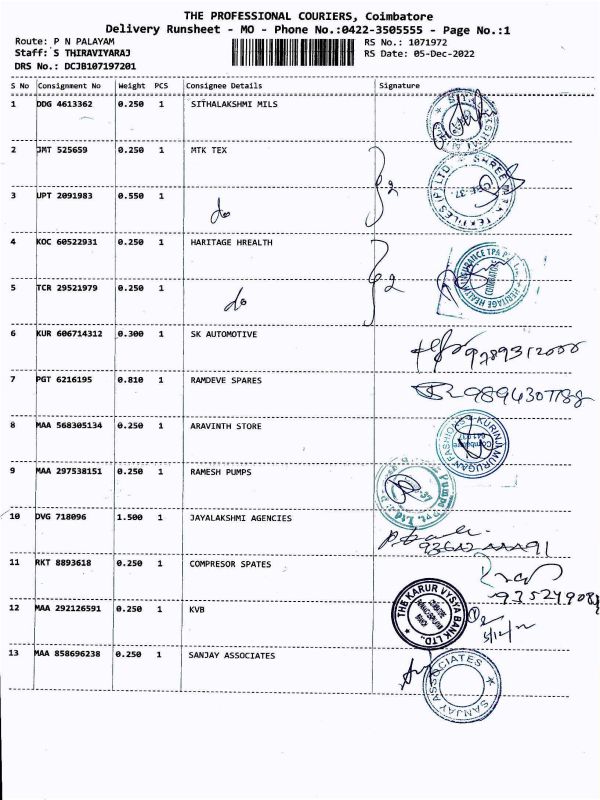 THE PROFESSIONAL COURIERS, Coimbatore
Delivery Runsheet - MO - Phone No.:0422-3505555 - Page No.:1
Route: P N PALAYAM
Staff: S THIRAVIYARAJ
DRS No.: DCJB107197201
RS No.: 1071972
RS Date: 05-Dec-2022
S No Consignment No Weight PCS Consignee Details Signature
1 DDG 4613362 0.250 1 SITHALAKSHMI MILS
2 JMT 525659 0.250 1 MTK TEX
3 UPT 2091983 0.550 1
do
2
SHREE M.T.K TEXTILES (P) LTD
4 KOC 60522931 0.250 1 HARITAGE HREALTH
5 TCR 29521979 0.250 1
do
2
HERITAGE HEALTH INSURANCE TPA
COIMBATORE
6 KUR 606714312 0.300 1 SK AUTOMOTIVE
9789312000
7 PGT 6216195 0.810 1 RAMDEVE SPARES
8 MAA 568305134 0.250 1 ARAVINTH STORE
KURINJI MURUGAN FASHIONS
Coimbatore
9 MAA 297538151 0.250 1 RAMESH PUMPS
Pumps Pvt. Ltd.
10 DVG 718096 1.500 1 JAYALAKSHMI AGENCIES
11 RKT 8893618 0.250 1 COMPRESOR SPATES
12 MAA 292126591 0.250 1 KVB
THE KARUR VYSYA BANK LTD.
5/12/22
13 MAA 858696238 0.250 1 SANJAY ASSOCIATES
SANJAY ASSOCIATES